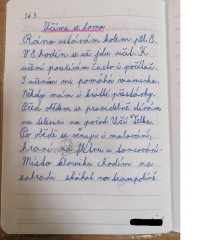 16.3.
Učíme se doma
Ráno vstávám kolem půl 8.
V 8 hodin se už jdu učit. K
učení používám často i počítač.
S učením mi pomáhá maminka.
Někdy mám i krátké přestávky.
Před obědem se pravidelně dívám
na televizi na pořad Učí Telka.
Po obědě se věnuji i malování,
hraní na flétnu a tancování.
Místo kroužku chodím na
zahradu skákat na trampolíně.